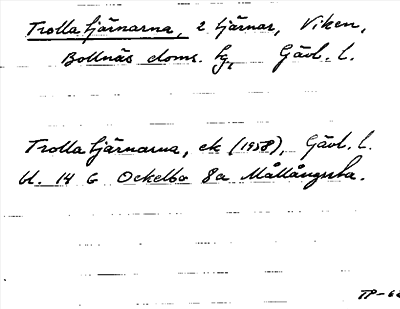 Trollatjärnarna, 2 tjärnar, Viken,
Bollnäs doms. fg, Gävl. l.
Trollatjärnarna, ek (1958), Gävl. l.
bl. 14 G Ockelbo 8a Mållångssta.
TP-62